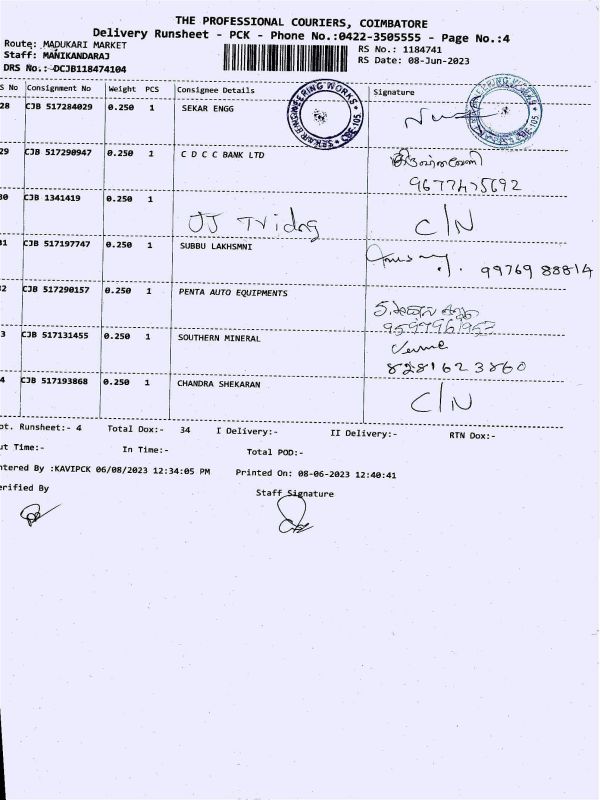 THE PROFESSIONAL COURIERS, COIMBATORE
Delivery Runsheet - PCK - Phone No.:0422-3505555 - Page No.:4
Route: MADUKARI MARKET
RS No.: 1184741
Staff: MANIKANDARAJ
RS Date: 08-Jun-2023
DRS No.:-DCJB118474104
S No Consignment No Weight PCS Consignee Details Signature
28 CJB 517284029 0.250 1 SEKAR ENGG
SEKAR ENGINEERING WORKS
29 CJB 517290947 0.250 1 C D C C BANK LTD
9677475692
30 CJB 1341419 0.250 1 JJ C/N
31 CJB 517197747 0.250 1 SUBBU LAKHSMNI
99769 88814
2 CJB 517290157 0.250 1 PENTA AUTO EQUIPMENTS
3 CJB 517131455 0.250 1 SOUTHERN MINERAL
8281623860
4 CJB 517193868 0.250 1 CHANDRA SHEKARAN C/N
ot. Runsheet:- 4 Total Dox:- 34 I Delivery:- II Delivery:- RTN Dox:-
ut Time:- In Time:- Total POD:-
ntered By :KAVIPCK 06/08/2023 12:34:05 PM Printed On: 08-06-2023 12:40:41
erified By Staff Signature